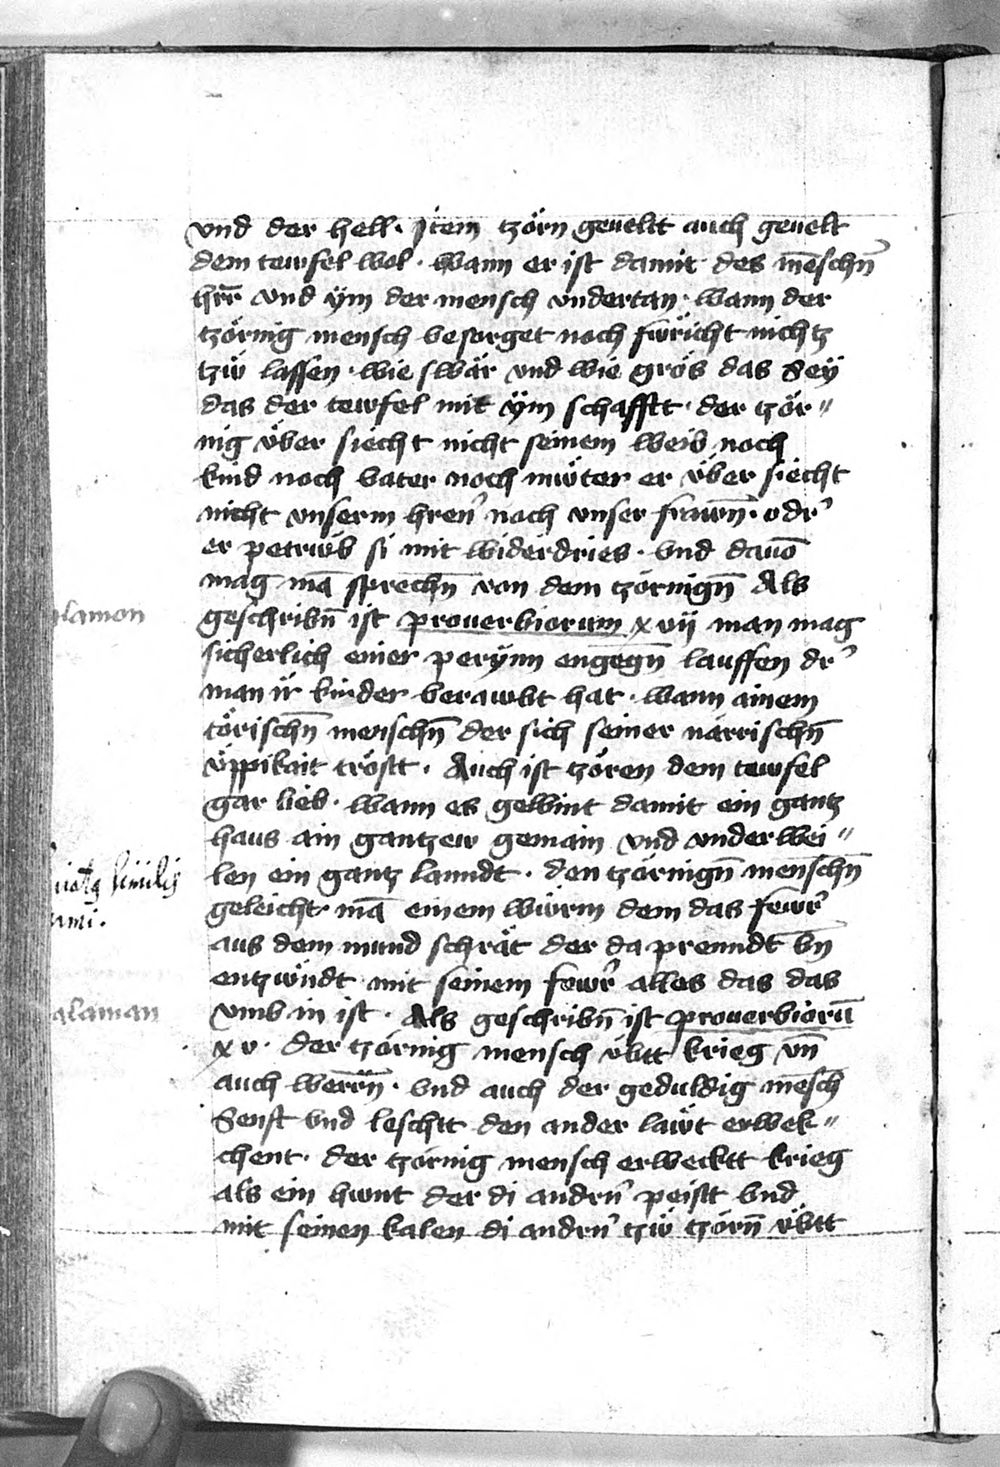 vnd der hell · Jtem tzörn geueltt auch geuelt
dem tewfel wol · wann er ist damit des me̅schn̅
hrr̅ vnd ÿm der mensch vndertan · wann der
tzörnig mensch besorget noch fwricht nichtz
tzŵ lassen · wie swär vnd wie grös das Seÿ
das der tewfel mit ÿm schafftt · der tzör〃
nig v̈ber siecht nicht seinem weib noch
kind noch vater noch mẅter er v̈ber siecht
nicht vnserm hren̅ noch vnser frawn̅ · odr̛
er petrwb si mit widerdries · vnd dauo̅
mag ma̅ sprechn̅ von dem tzörnign̅ Als
geschribn̅ ist prouerbiorum xvij man mag
sicherlich einer perÿnn engegn̅ lauffen dr̛
man ir kinder berawbt hat · wann ainem
törischn̅ menschn̅ der sich seiner närrischn̅
v̈ppikait tröstt · Auch ist tzören dem tewfel
gar lieb · wann es gewint damit ein gantz
haus ain gantzew gemain vnd vnderwei〃
len ein gantz lanndt · den tzörnign̅ menschn̅
geleicht ma̅ einem würm dem das fewr̛
aus dem mund schrät der da prenndt vn̅
entzwndt mit seinem fewr̛ alles das das
vmb in ist · Als geschribn̅ ist prouerbioru̅
xv · der tzörnig mensch v̈btt krieg vn̅
auch werrn̅ · vnd auch der geduldig mensch
Senft vnd leschtt den ander läwt erwek〃
chent · der tzörnig mensch erwecktt krieg
als ein hwnt der di andrn̅ peistt vnd
mit seinen kalen di andrn̅ tzŵ tzörn̅ v̈btt
lamon
similis
alaman